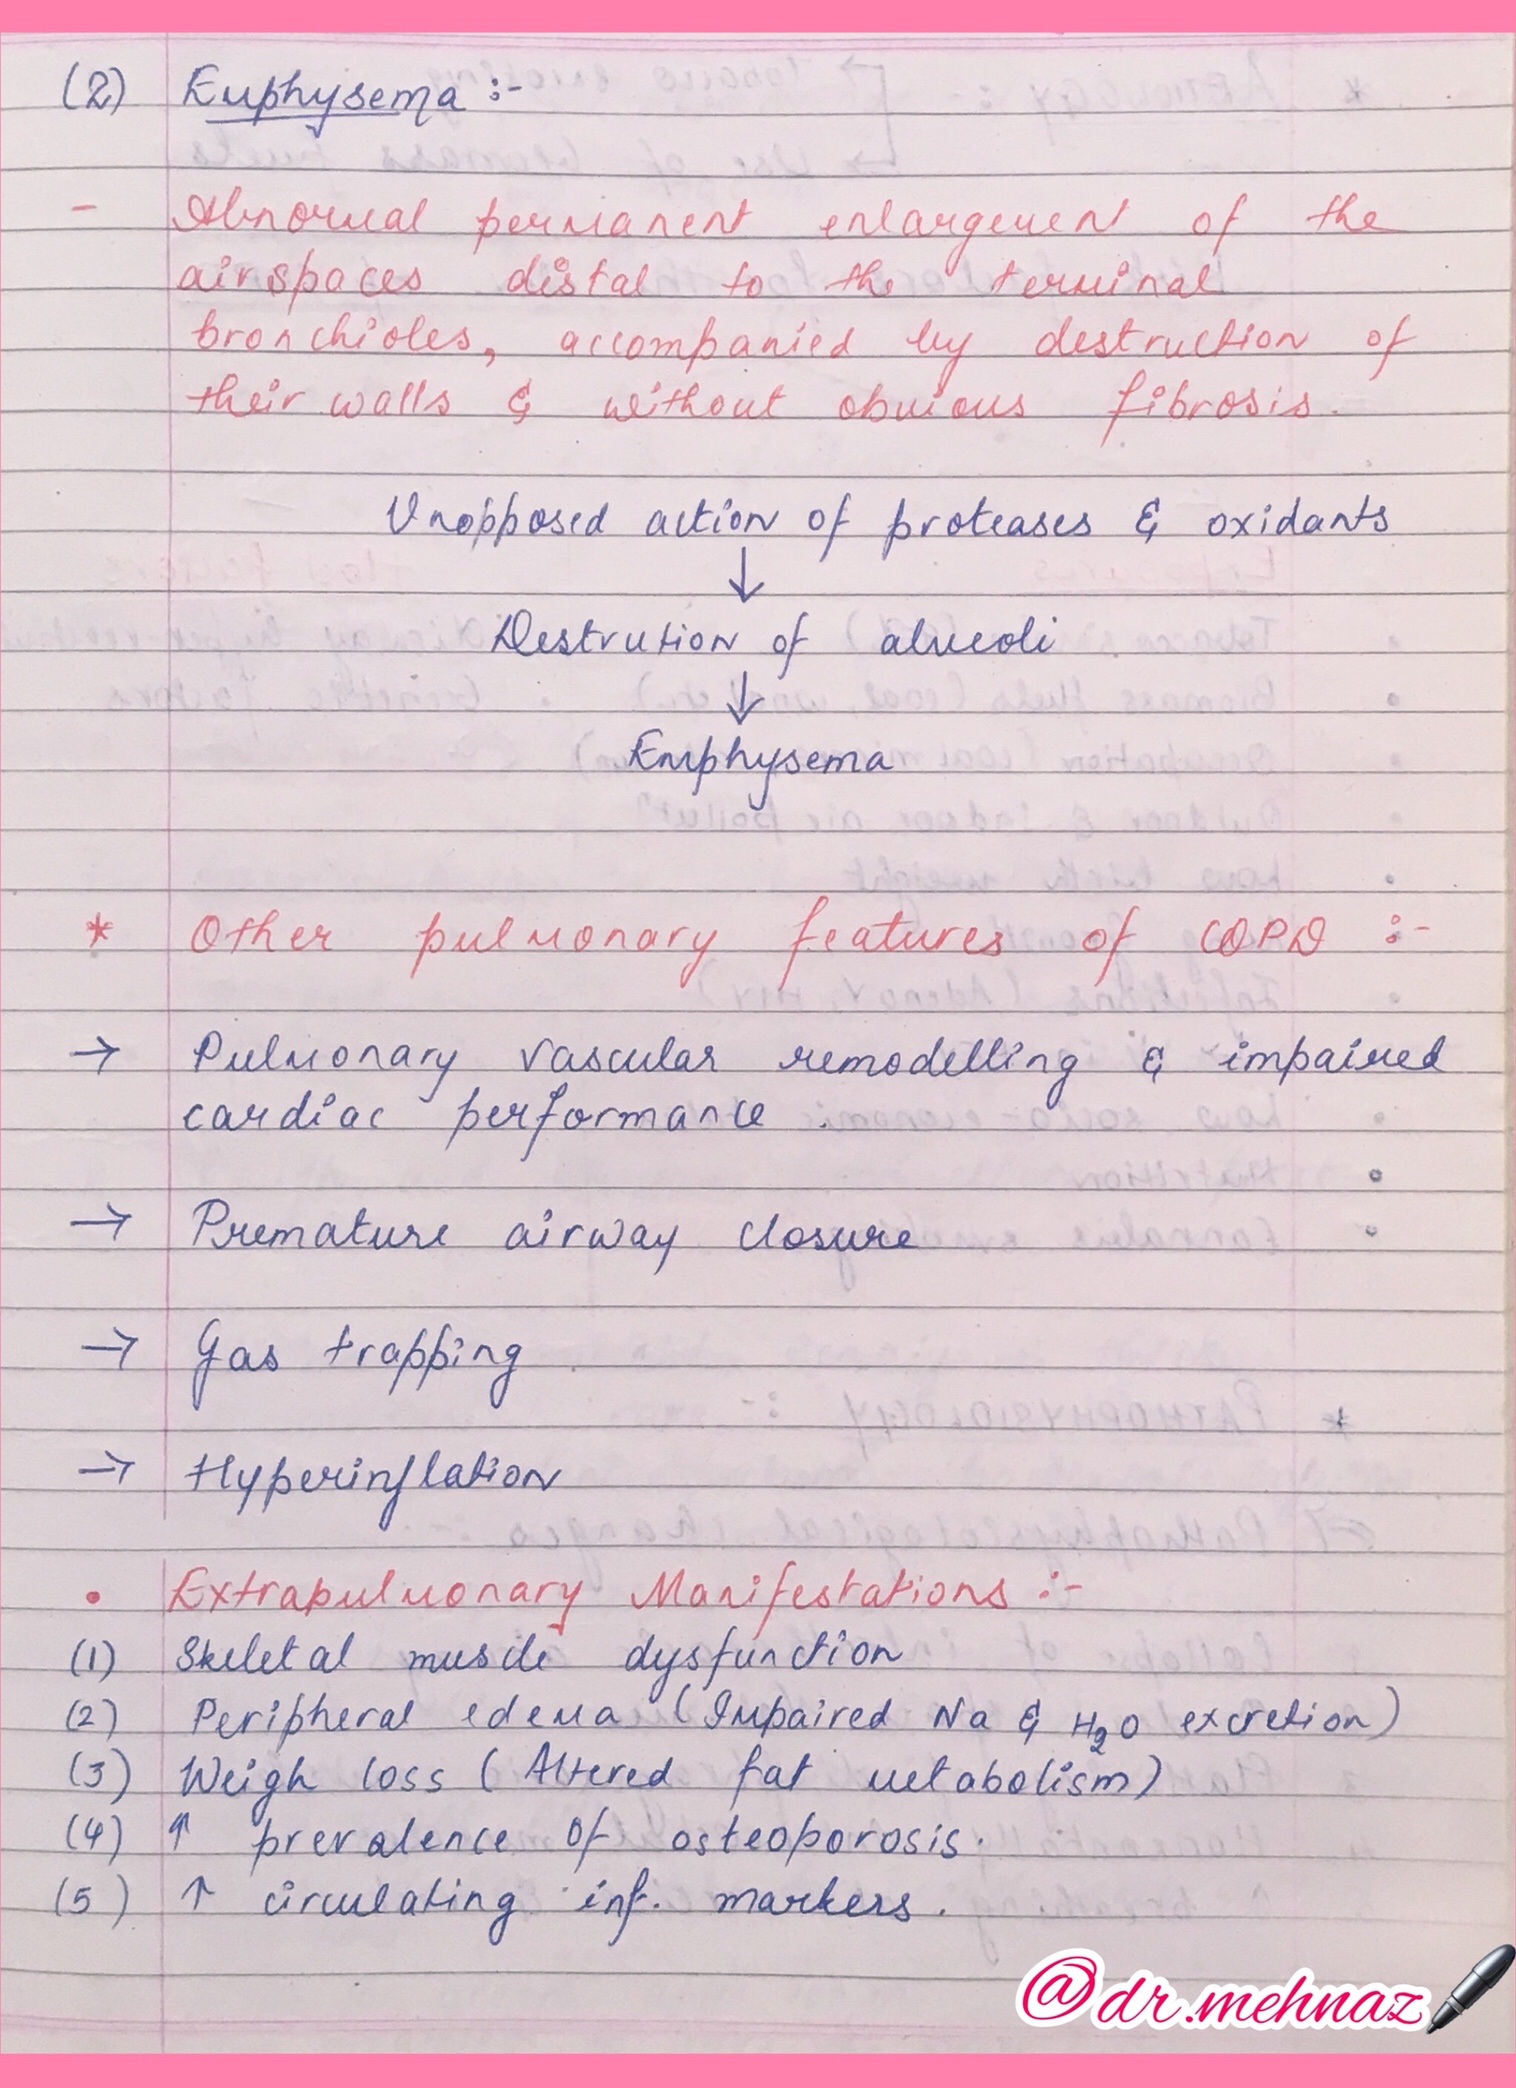 (2) Emphysema :-
- Abnormal permanent enlargement of the
airspaces distal to the terminal
bronchioles, accompanied by destruction of
their walls & without obvious fibrosis.
Unopposed action of proteases & oxidants
↓
Destrution of alveoli
↓
Emphysema
* Other pulmonary features of COPD :-
→ Pulmonary vascular remodelling & impaired
cardiac performance.
→ Premature airway closure
→ Gas trapping
→ Hyperinflation
• Extrapulmonary Manifestations :-
(1) Skeletal muscle dysfunction
(2) Peripheral edema (Impaired Na & H₂O excretion)
(3) Weigh loss (Altered fat metabolism)
(4) ↑ prevalence of osteoporosis.
(5) ↑ circulating inf. markers.
@dr.mehnaz